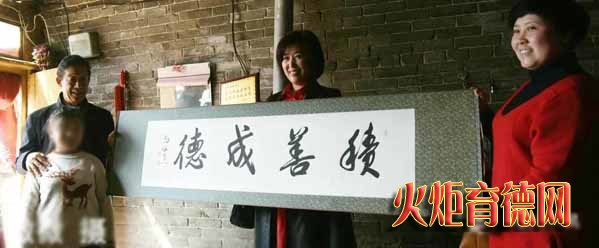 積善成德
火炬育德网